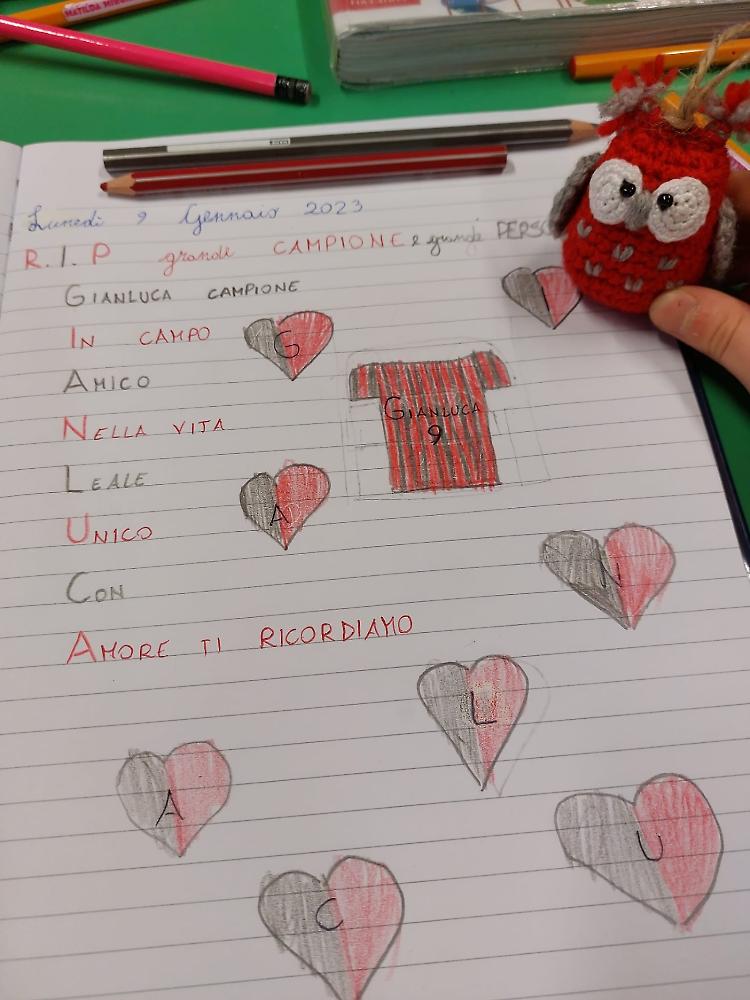 MATILDA
Lunedì 9 Gennaio 2023
R.I.P grande CAMPIONE e grande
GIANLUCA CAMPIONE
IN CAMPO
G
AMICO
GIANLUCA
9
NELLA VITA
LEALE
A
UNICO
N
CON
AMORE TI RICORDIAMO
L
A
U
C